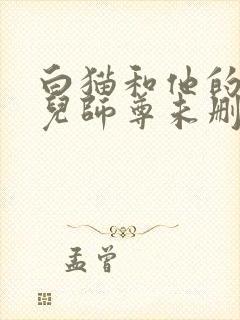 白猫和他的
兒師尊未刪
孟曾